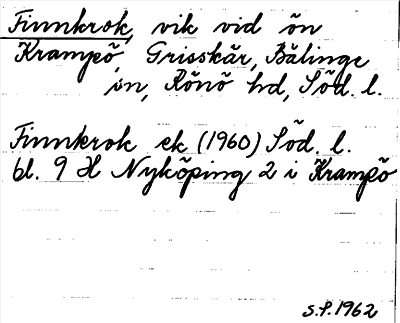 Finnkrok, vik vid ön
Krampö, Grisskär, Bälinge
sn, Rönö hd, Söd. l.
Finnkrok ek (1960) Söd. l.
bl. 9 H Nyköping 2 i Krampö
S.P. 1962